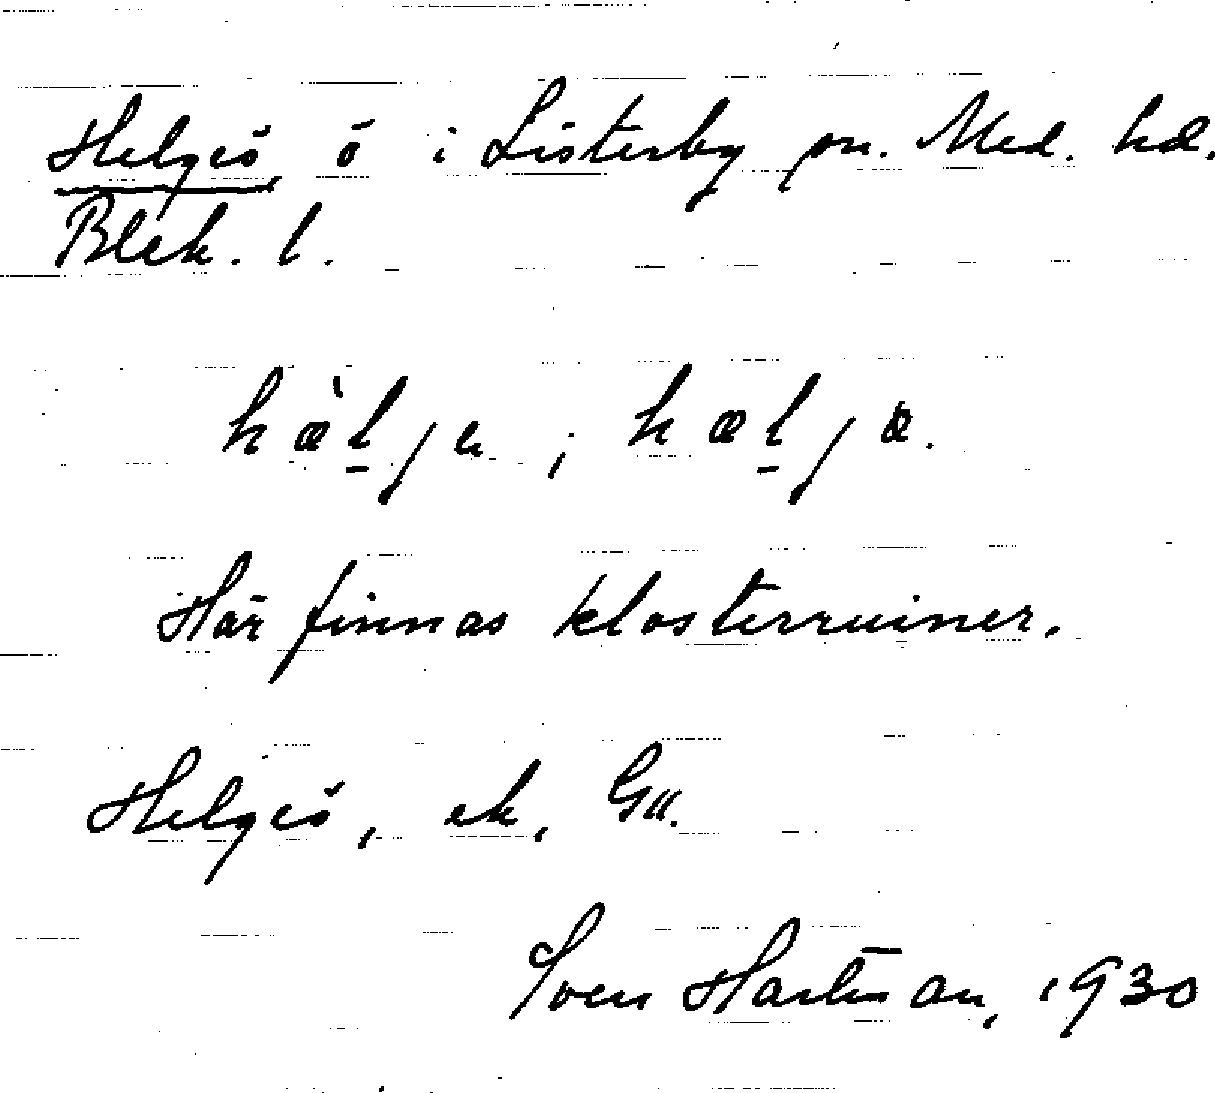 Helgeö ö i Listerby sn. Med. hd.
Blek. l.
Här finnas klosterruiner.
Helgeö, ek,
Sven Hartman, 1930